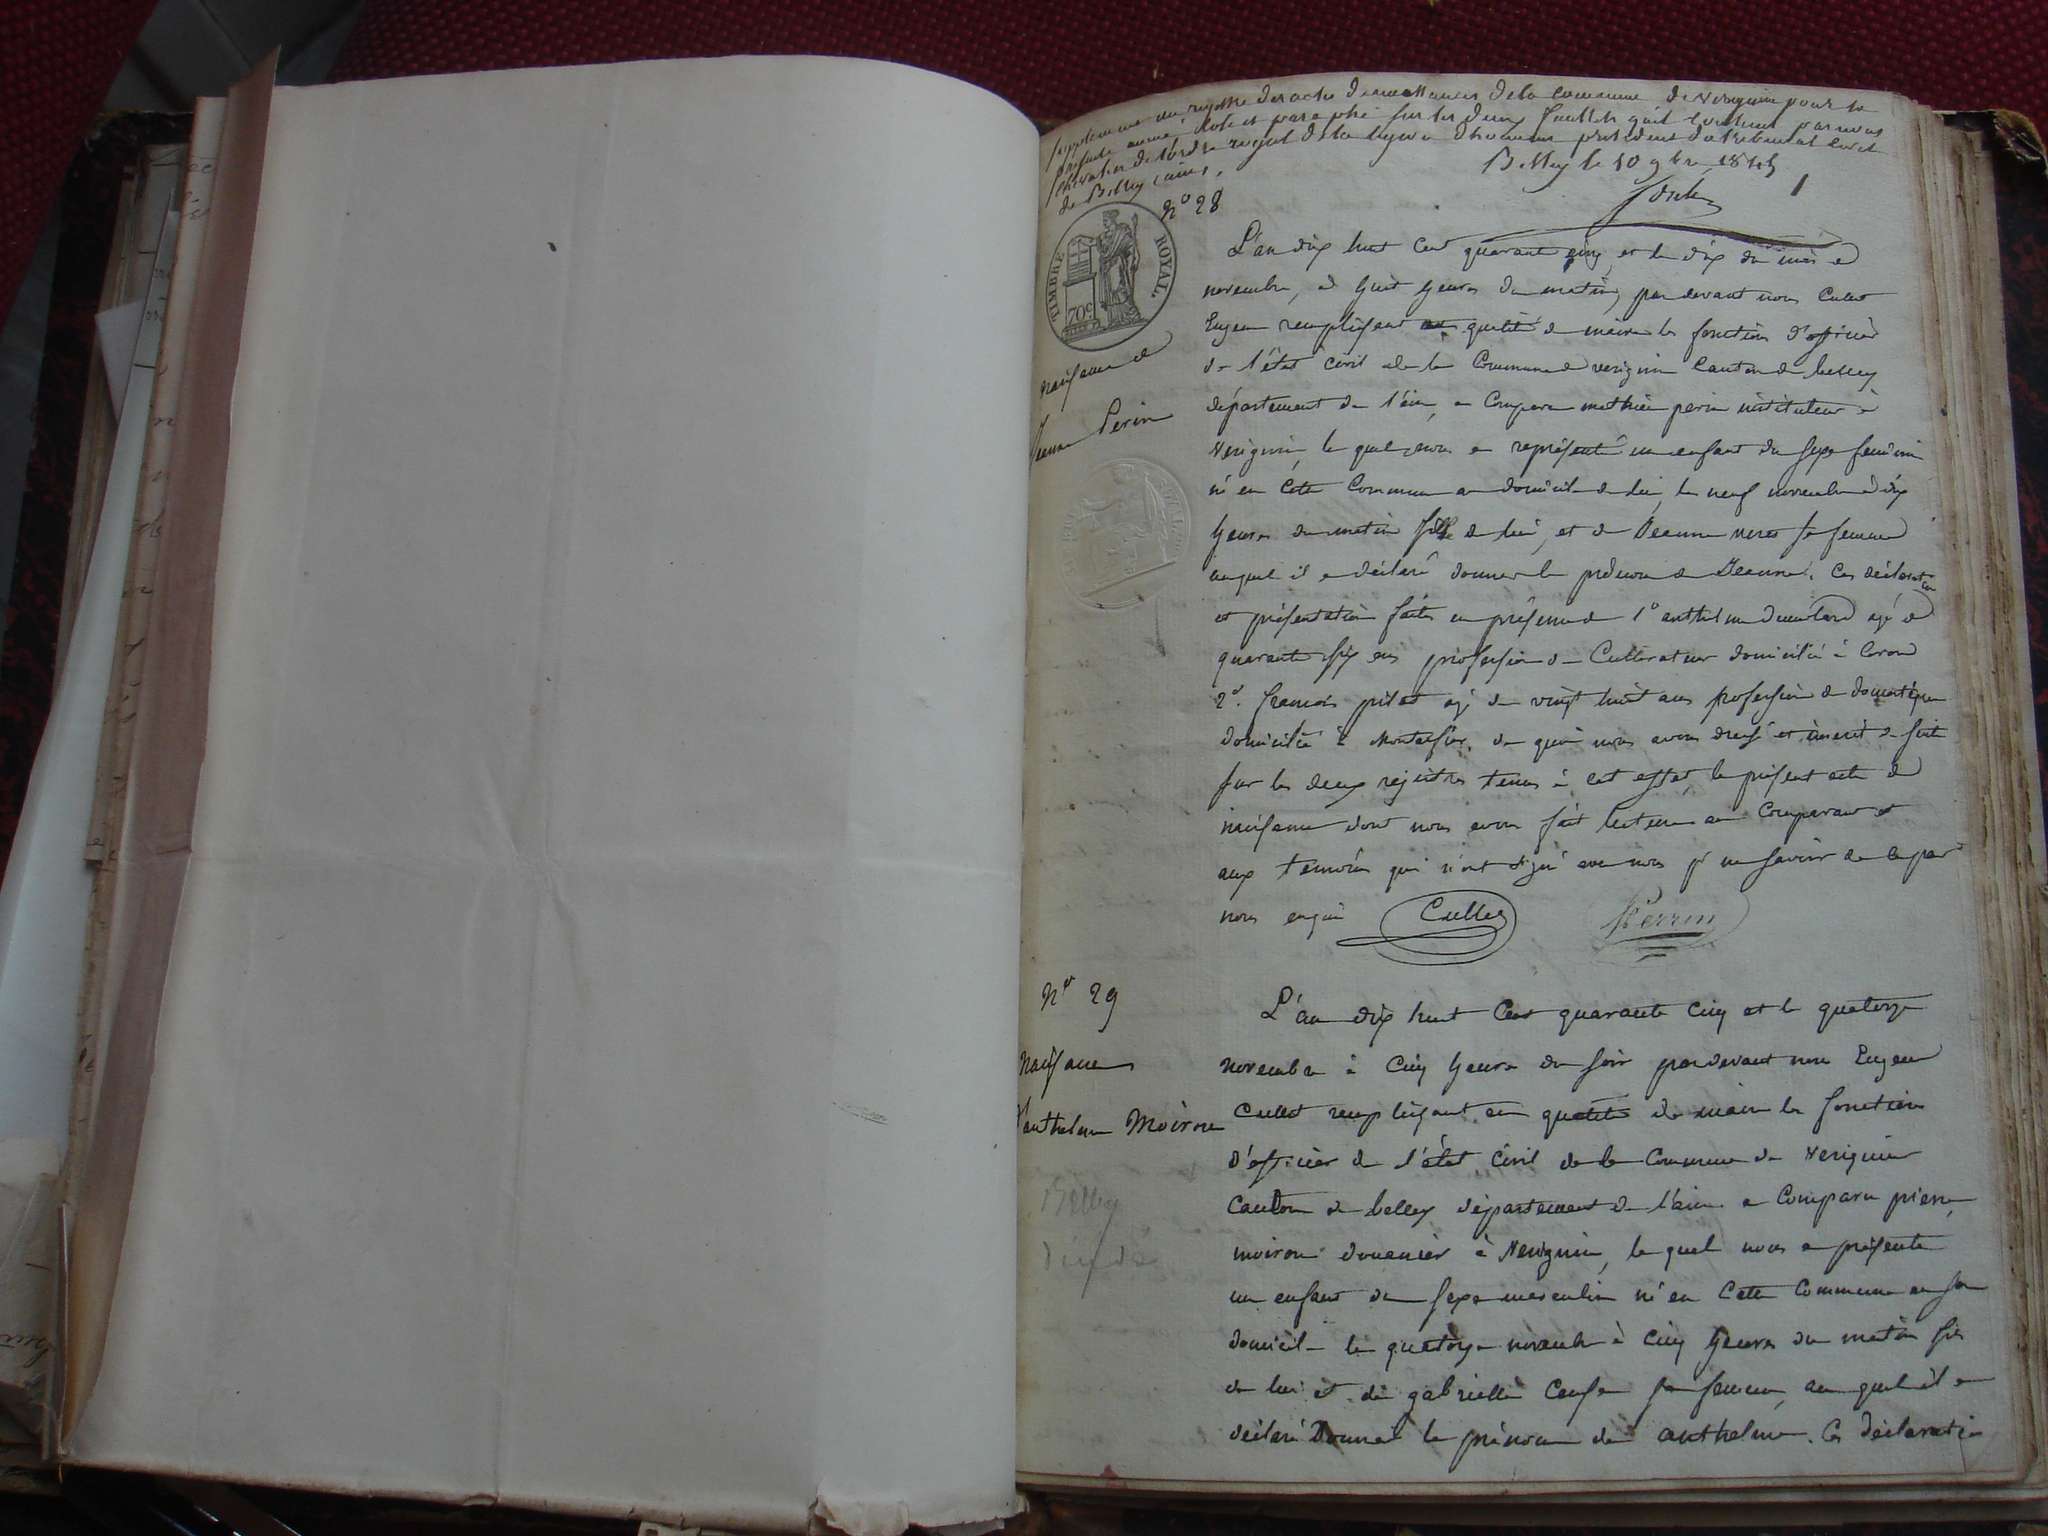 supplement au registre des actes de naissances de la commune de Virignin pour la
présente année, coté et paraphé sur les deux feuillets qu'il contient par nous
chevalier de l'ordre royal de la légion d'honneur président du tribunal civil
de Belley (ain).
Belley le 10 9bre 1845
1
N° 28
TIMBRE ROYAL.
70c
naissance de
Jeanne Perin
L'an dix huit cent quarante cinq et le dix du mois de
novembre, à huit heures du matin, par devant nous Cullet
Eugene remplissant en qualité de maire les fonctions d'officier
de l'état civil de la Commune de virignin Canton de belley
département de l'ain, a Comparu mathieu perin instituteur à
Virignin, le quel nous a représenté un enfant du sexe feminin
né en Cette Commune au domicile de lui, le neuf novembre à dix
heures du matin fille de lui, et de Jeanne sa femme
auquel il a déclaré donner le prénom de Jeanne. Ces déclaration
et présentation faites en présence de 1° anthelme âgé de
quarante six ans profession de Cultivateur domicilié à
2°. françois pilat âgé de vingt huit ans profession de domestique
domicilié à de quoi nous avons dressé et inscrit de suite
sur les deux rejistres tenus à cet effet, le présent acte de
naissance dont nous avons fait lecture au Comparant et
aux temoins qui n'ont signé avec nous p ne savoir de ce par
nous enquis Cullet Perrin
N° 29
Naissance
d'anthelme Moiron
Belley
L'an dix huit Cent quarante Cinq et le quatorze
novembre à Cinq heures du soir pardevant nous Eugene
Cullet remplissant en qualité de maire les fonctions
d'officier de l'état Civil de la Commune de Virignin
Canton de belley département de l'ain a Comparu pierre
moiron douanier à Virignin, le quel nous a présenté
un enfant du sexe masculin né en Cette Commune en son
domicile le quatorze novembre à Cinq heures du matin fils
de lui et de gabrielle sa femme, au quel il a
déclaré Donner le prénom de anthelme. Ces déclaration